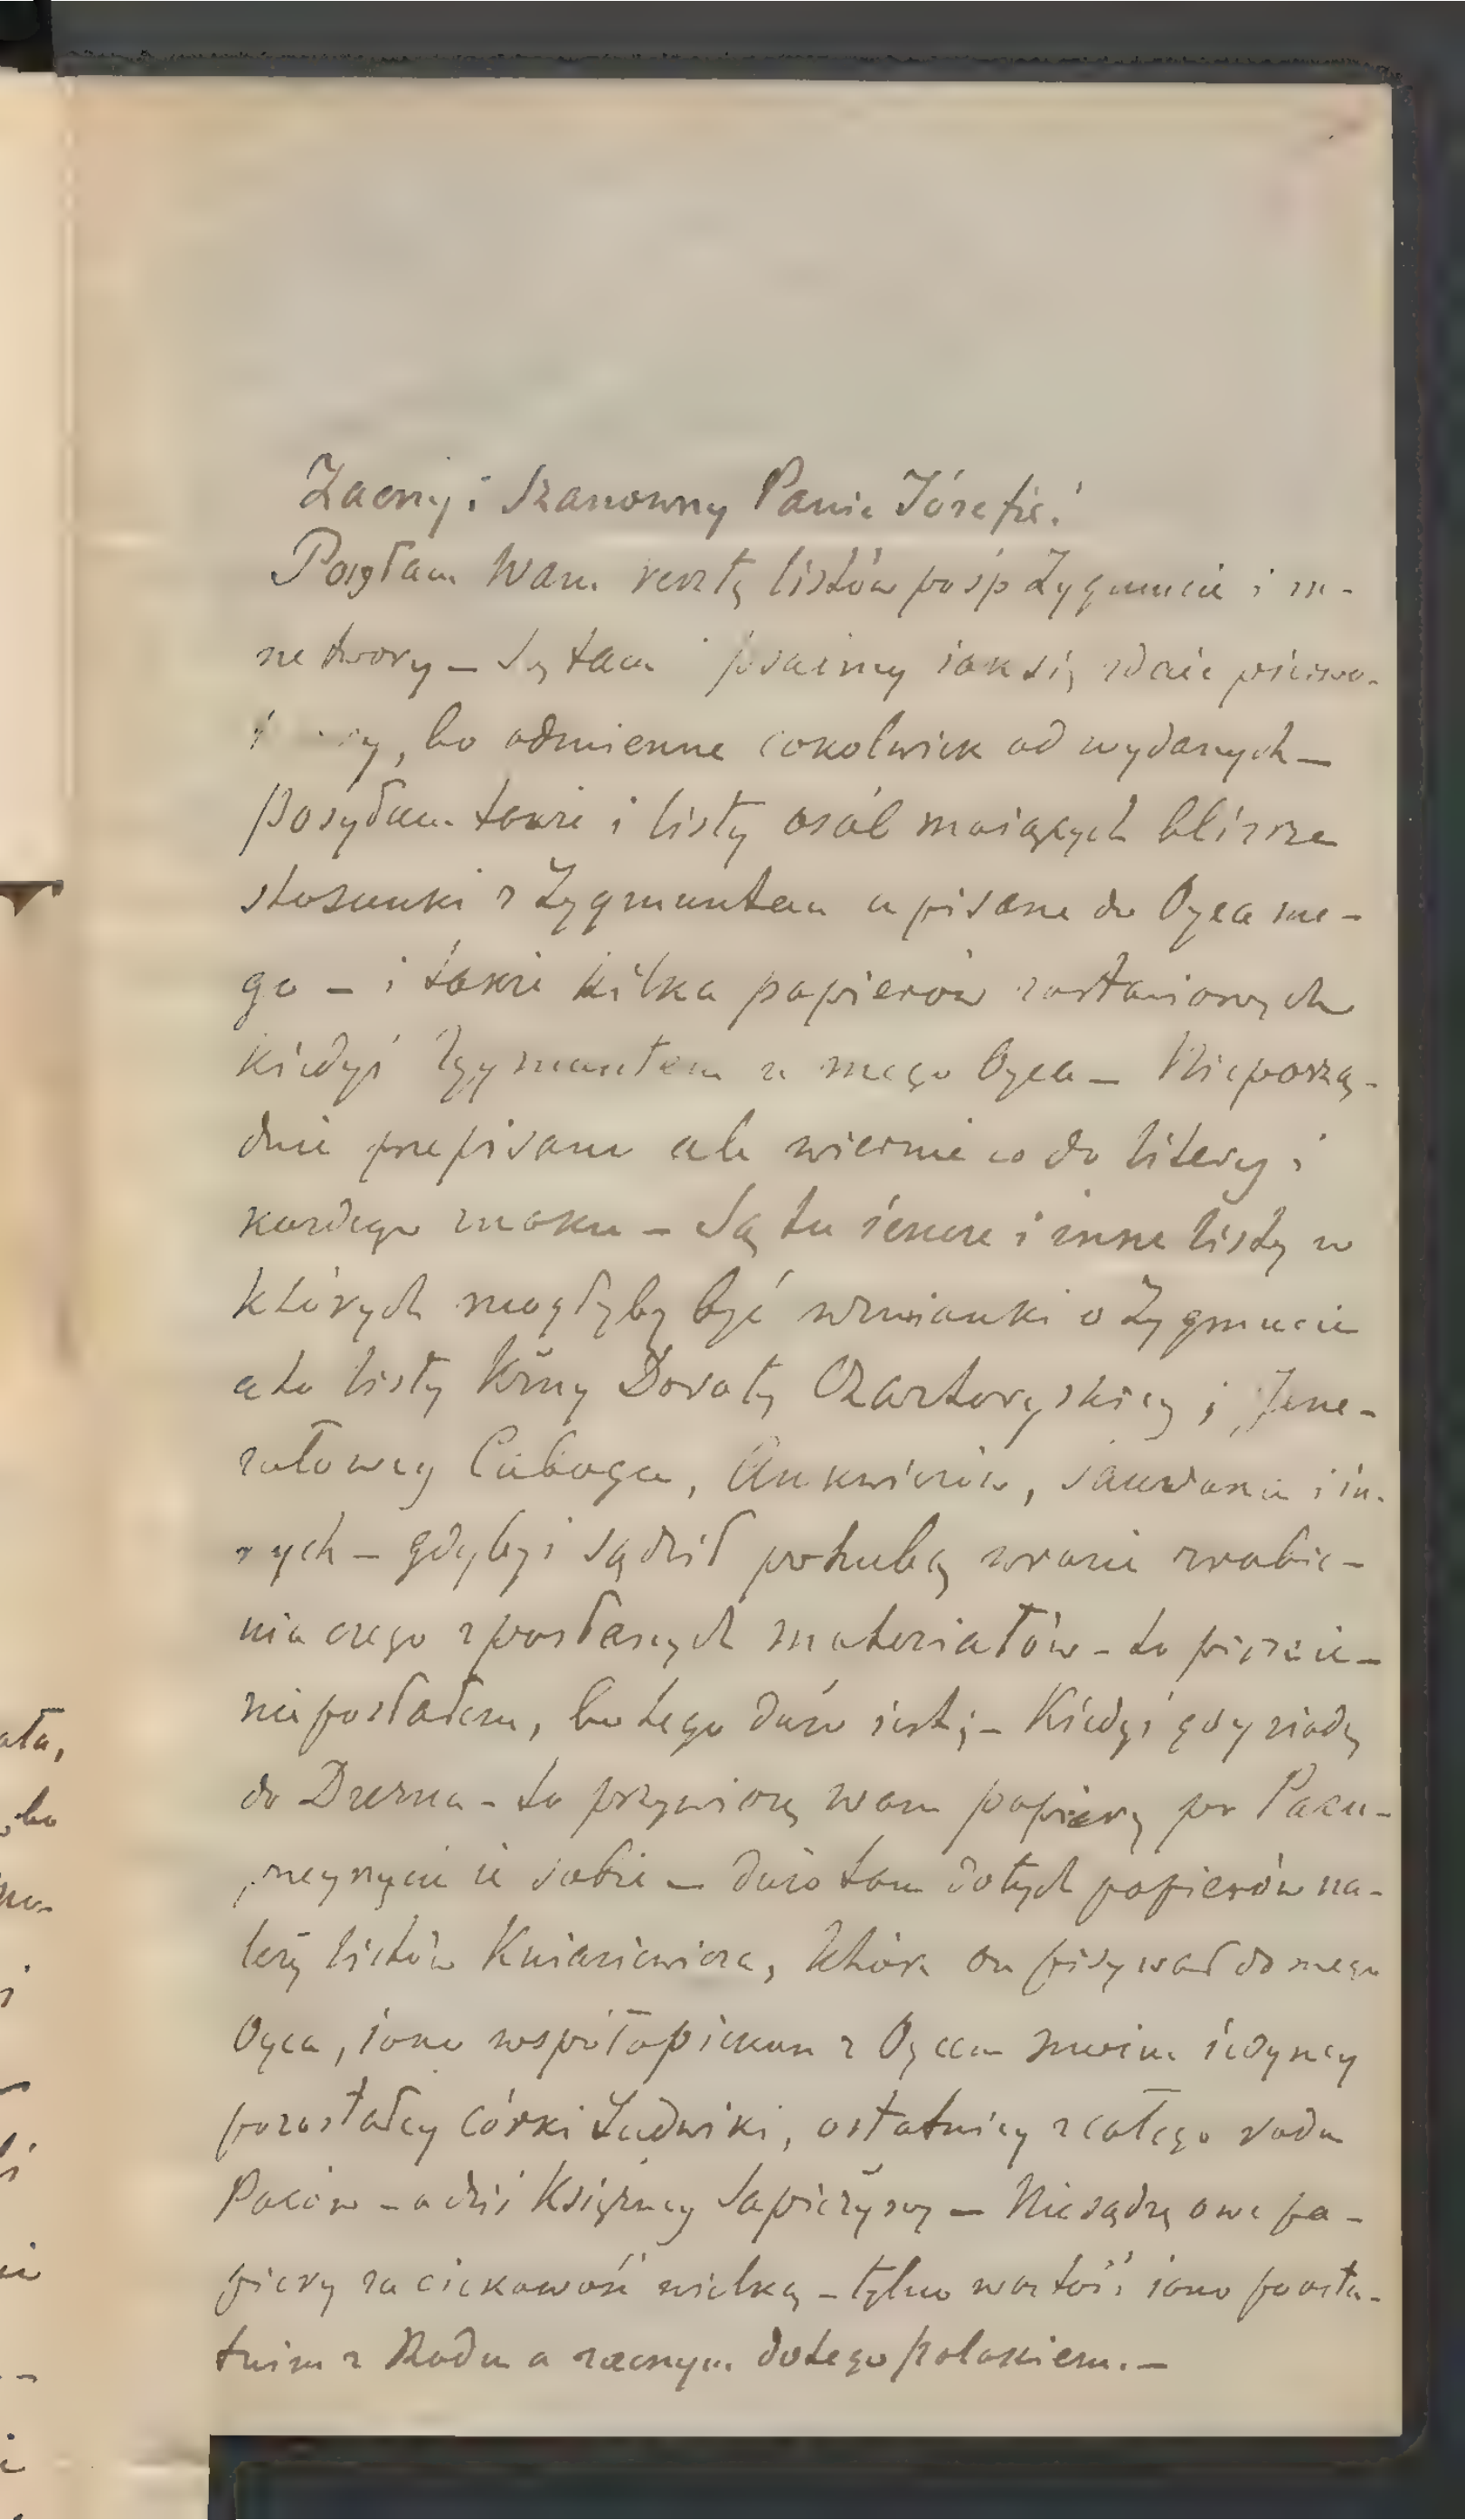 Zacny i Szanowny Panie Józefie!
Posyłam Wam resztę listów po śp Zygmuncie i in-
ne twory – Są tam psalmy iak się zdaie pierwo-
bo odmienne cokolwiek od wydanych –
Posyłam także i listy osób maiących bliższe
stosunki z Zygmuntem a pisane do Oyca me-
go – i także kilka papierów zostawionych
kiedyś Zygmuntem u mego Oyca – Nieporzą-
dnie przepisane ale wiernie co do litery i
każdego znaku – Są tu ieszcze i inne listy w
których mogłyby być wzmianki o Zygmuncie
a to listy Xżny Doroty Czartoryskiey i Jene-
rałowey Caboga, Ankwiczów, i in-
nych – gdybyś sądził potrzebę w razie zrobie-
nia czego z posłanych materiałów – to piszcie –
nie posłałem, bo tego dużo iest; – Kiedyś gdy ziadę
do Drezna – to przywiozę wam papiery po Pacu –
weźmiecie ie sobie – dużo tam do tych papierów na-
leży listów Kniaziewicza, które on pisywał do mego
Oyca, iako współopiekun z Oycem moim iedyney
pozostałey córki Ludwiki, ostatniey z całego rodu
Paców – a dziś Księżney Sapieżyny – Nie sądzę owe pa-
piery za ciekawość wielką – tylko wartość iako po osta-
tnim z Rodu a zacnym do tego polakiem. –
ata,
bo